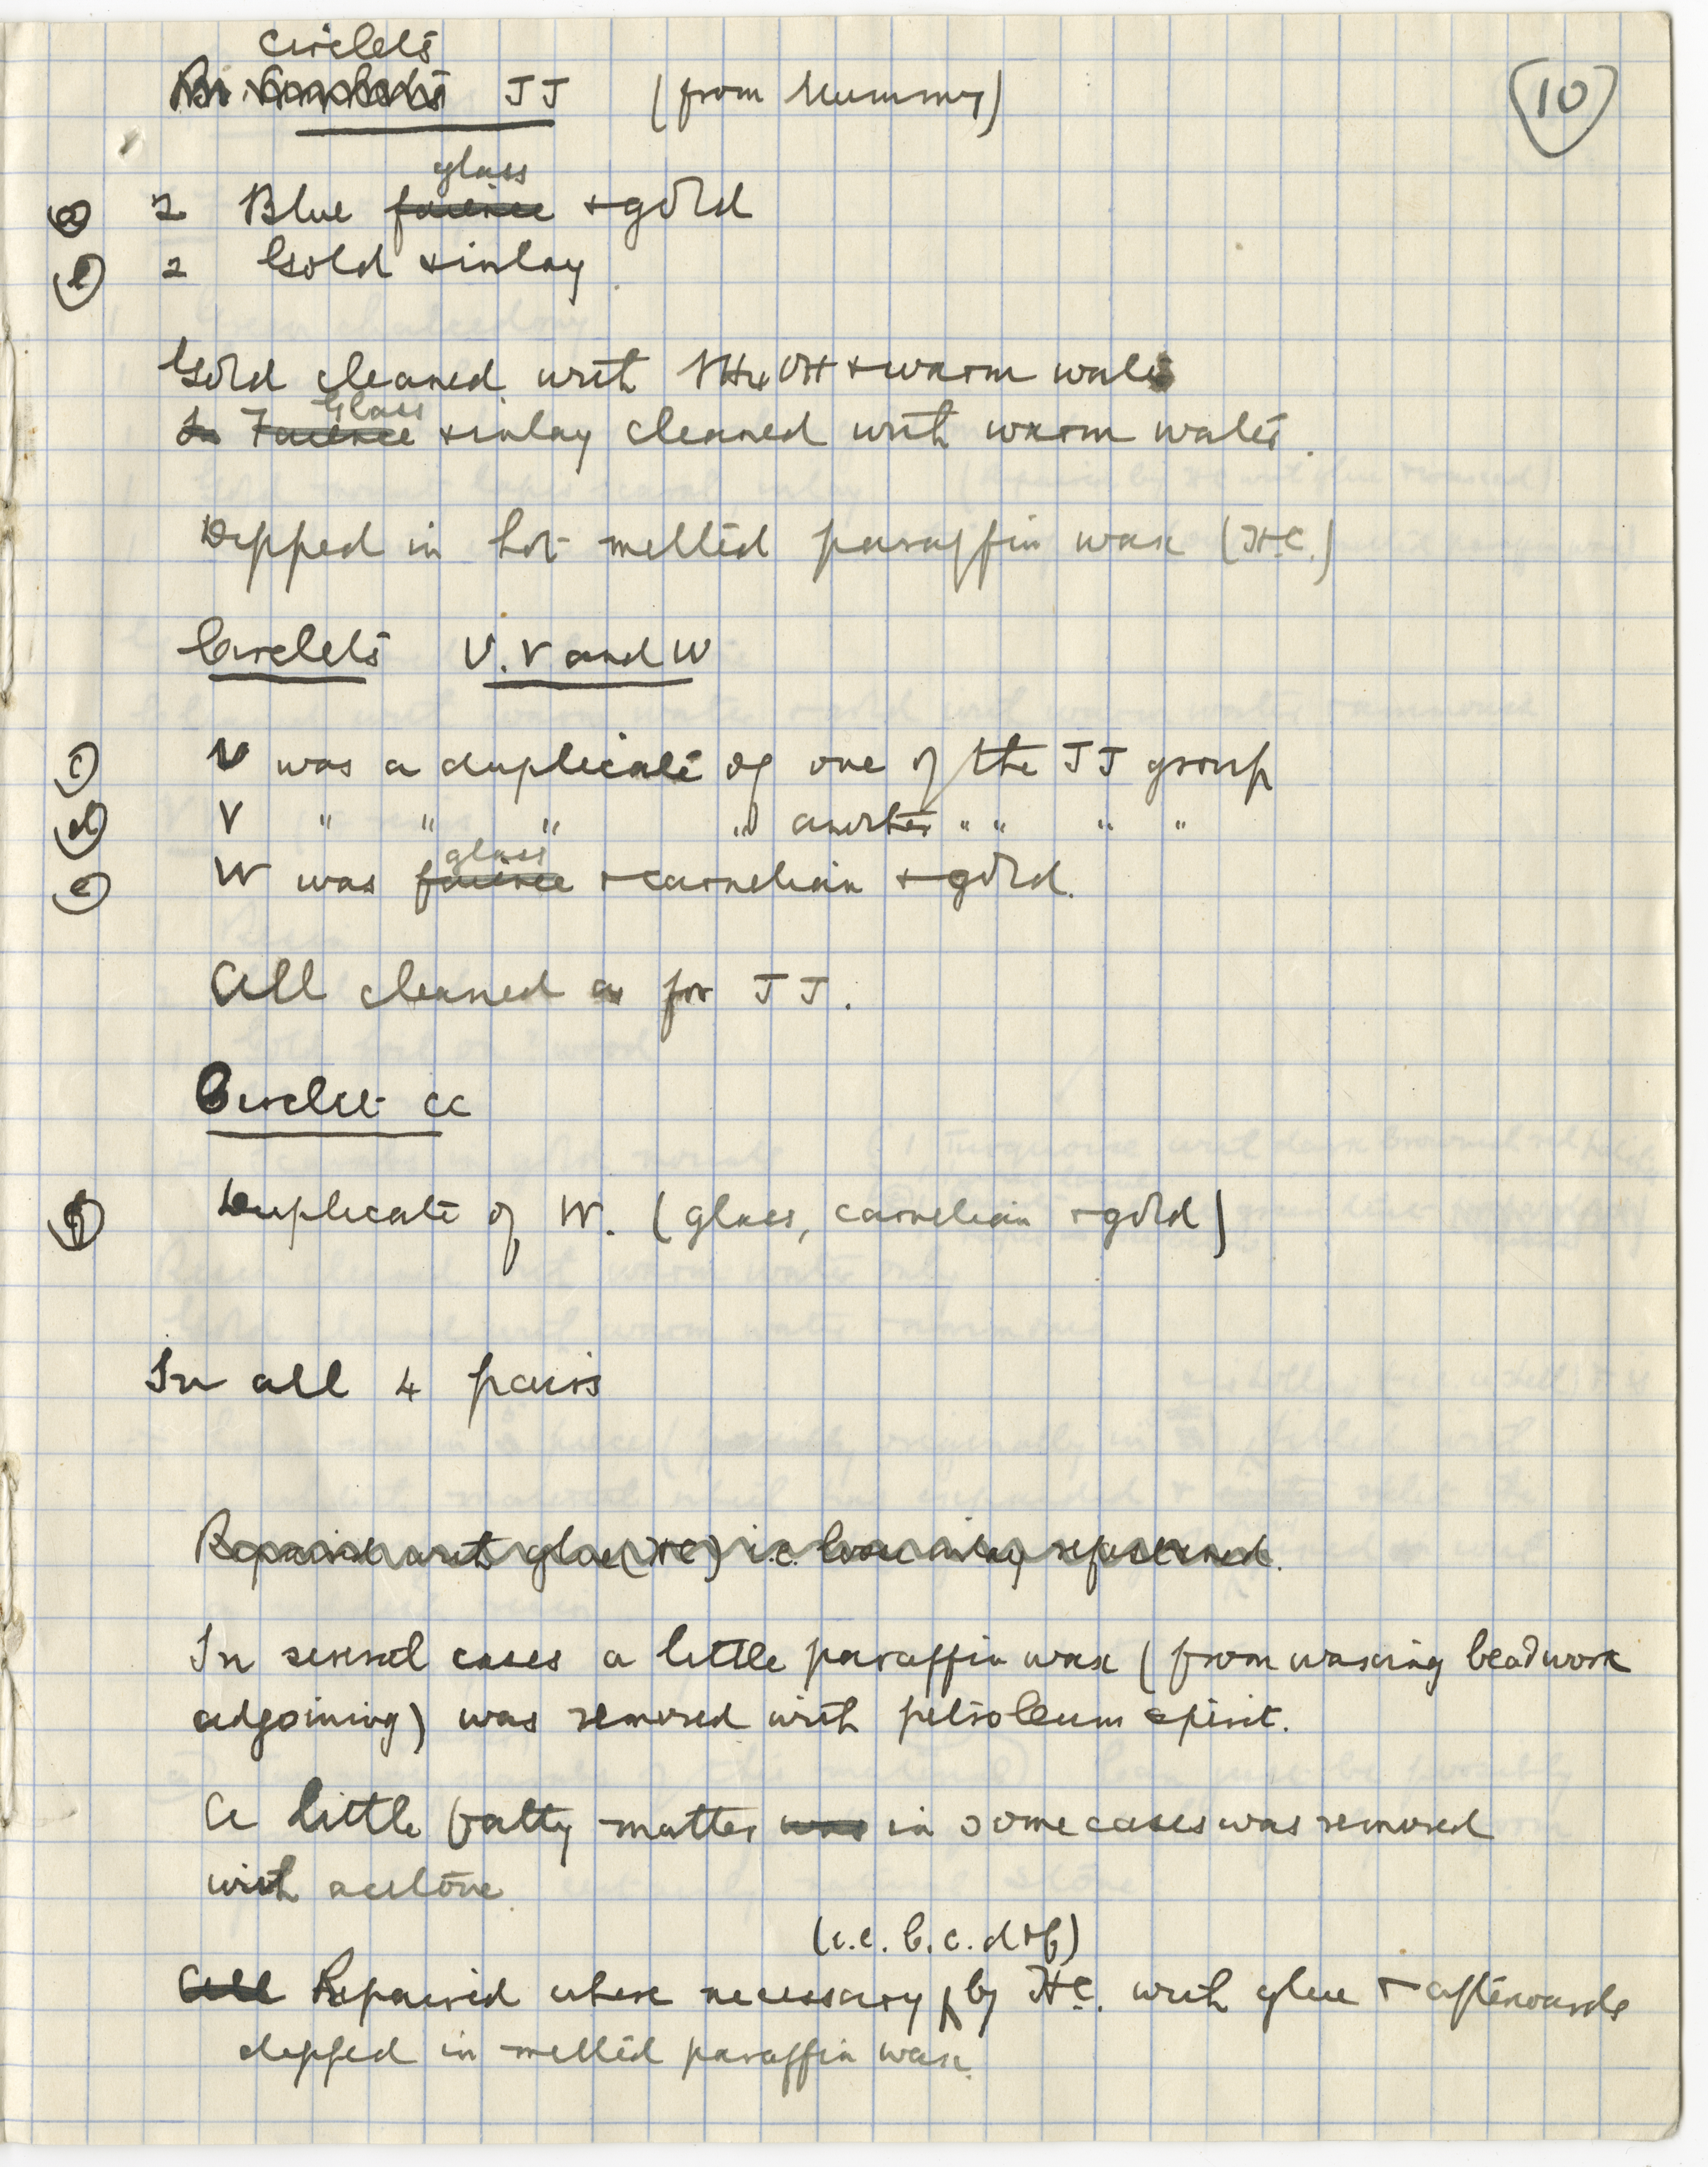 Circlets
JJ (from Mummy)
10
glass
(a) 2 Blue faience + gold
(b) 2 Gold + inlay
Gold cleaned with NH4OH + warm water
Glass
Faience + inlay cleaned with warm water.
Dipped in hot melted paraffin wax (H.C.)
Circlets U.V and W
(c) U was a duplicate of one of the JJ group
(d) V " " " " another " " " "
glass
(e) W was faience + carnelian + gold.
All cleaned as for JJ.
Circlet CC
(f) Duplicate of W. (glass, carnelian + gold)
In all 4 pairs
Repaired with glue (HC) i.e. loose inlay refastened.
In several cases a little paraffin wax (from waxing beadwork
adjoining) was removed with petroleum spirit.
A little fatty matter was in some cases was removed
with acetone
(i.e. b.c. d + f)
All Repaired where necessary by H.C. with glue + afterwards
dipped in melted paraffin wax.